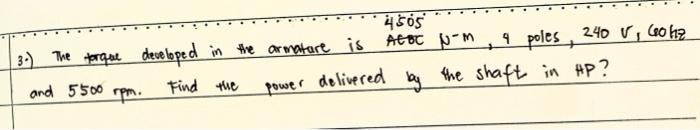 4505
3.) The torque developed in the armature is N-m , 4 poles, 240 V, 60 Hz
and 5500 rpm. Find the power delivered by the shaft in HP?